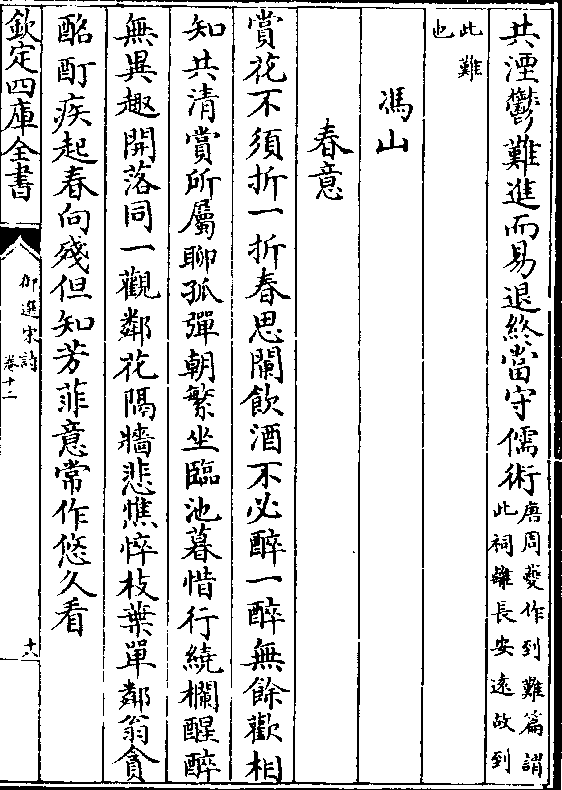 共湮鬱難進而易退終當守儒術唐周夔作到難篇謂此祠離長安遠故到
此難也
馮山
春意
賞花不須折一折春思闌飲酒不必醉一醉無餘歡相
知共清賞所屬聊孤彈朝繁坐臨池暮惜行繞欄醒醉
無異趣開落同一觀鄰花隔牆悲憔悴枝葉單鄰翁貪
酩酊疾起春向殘但知芳菲意常作悠久看
欽定四庫全書
御選宋詩
卷十二
十八